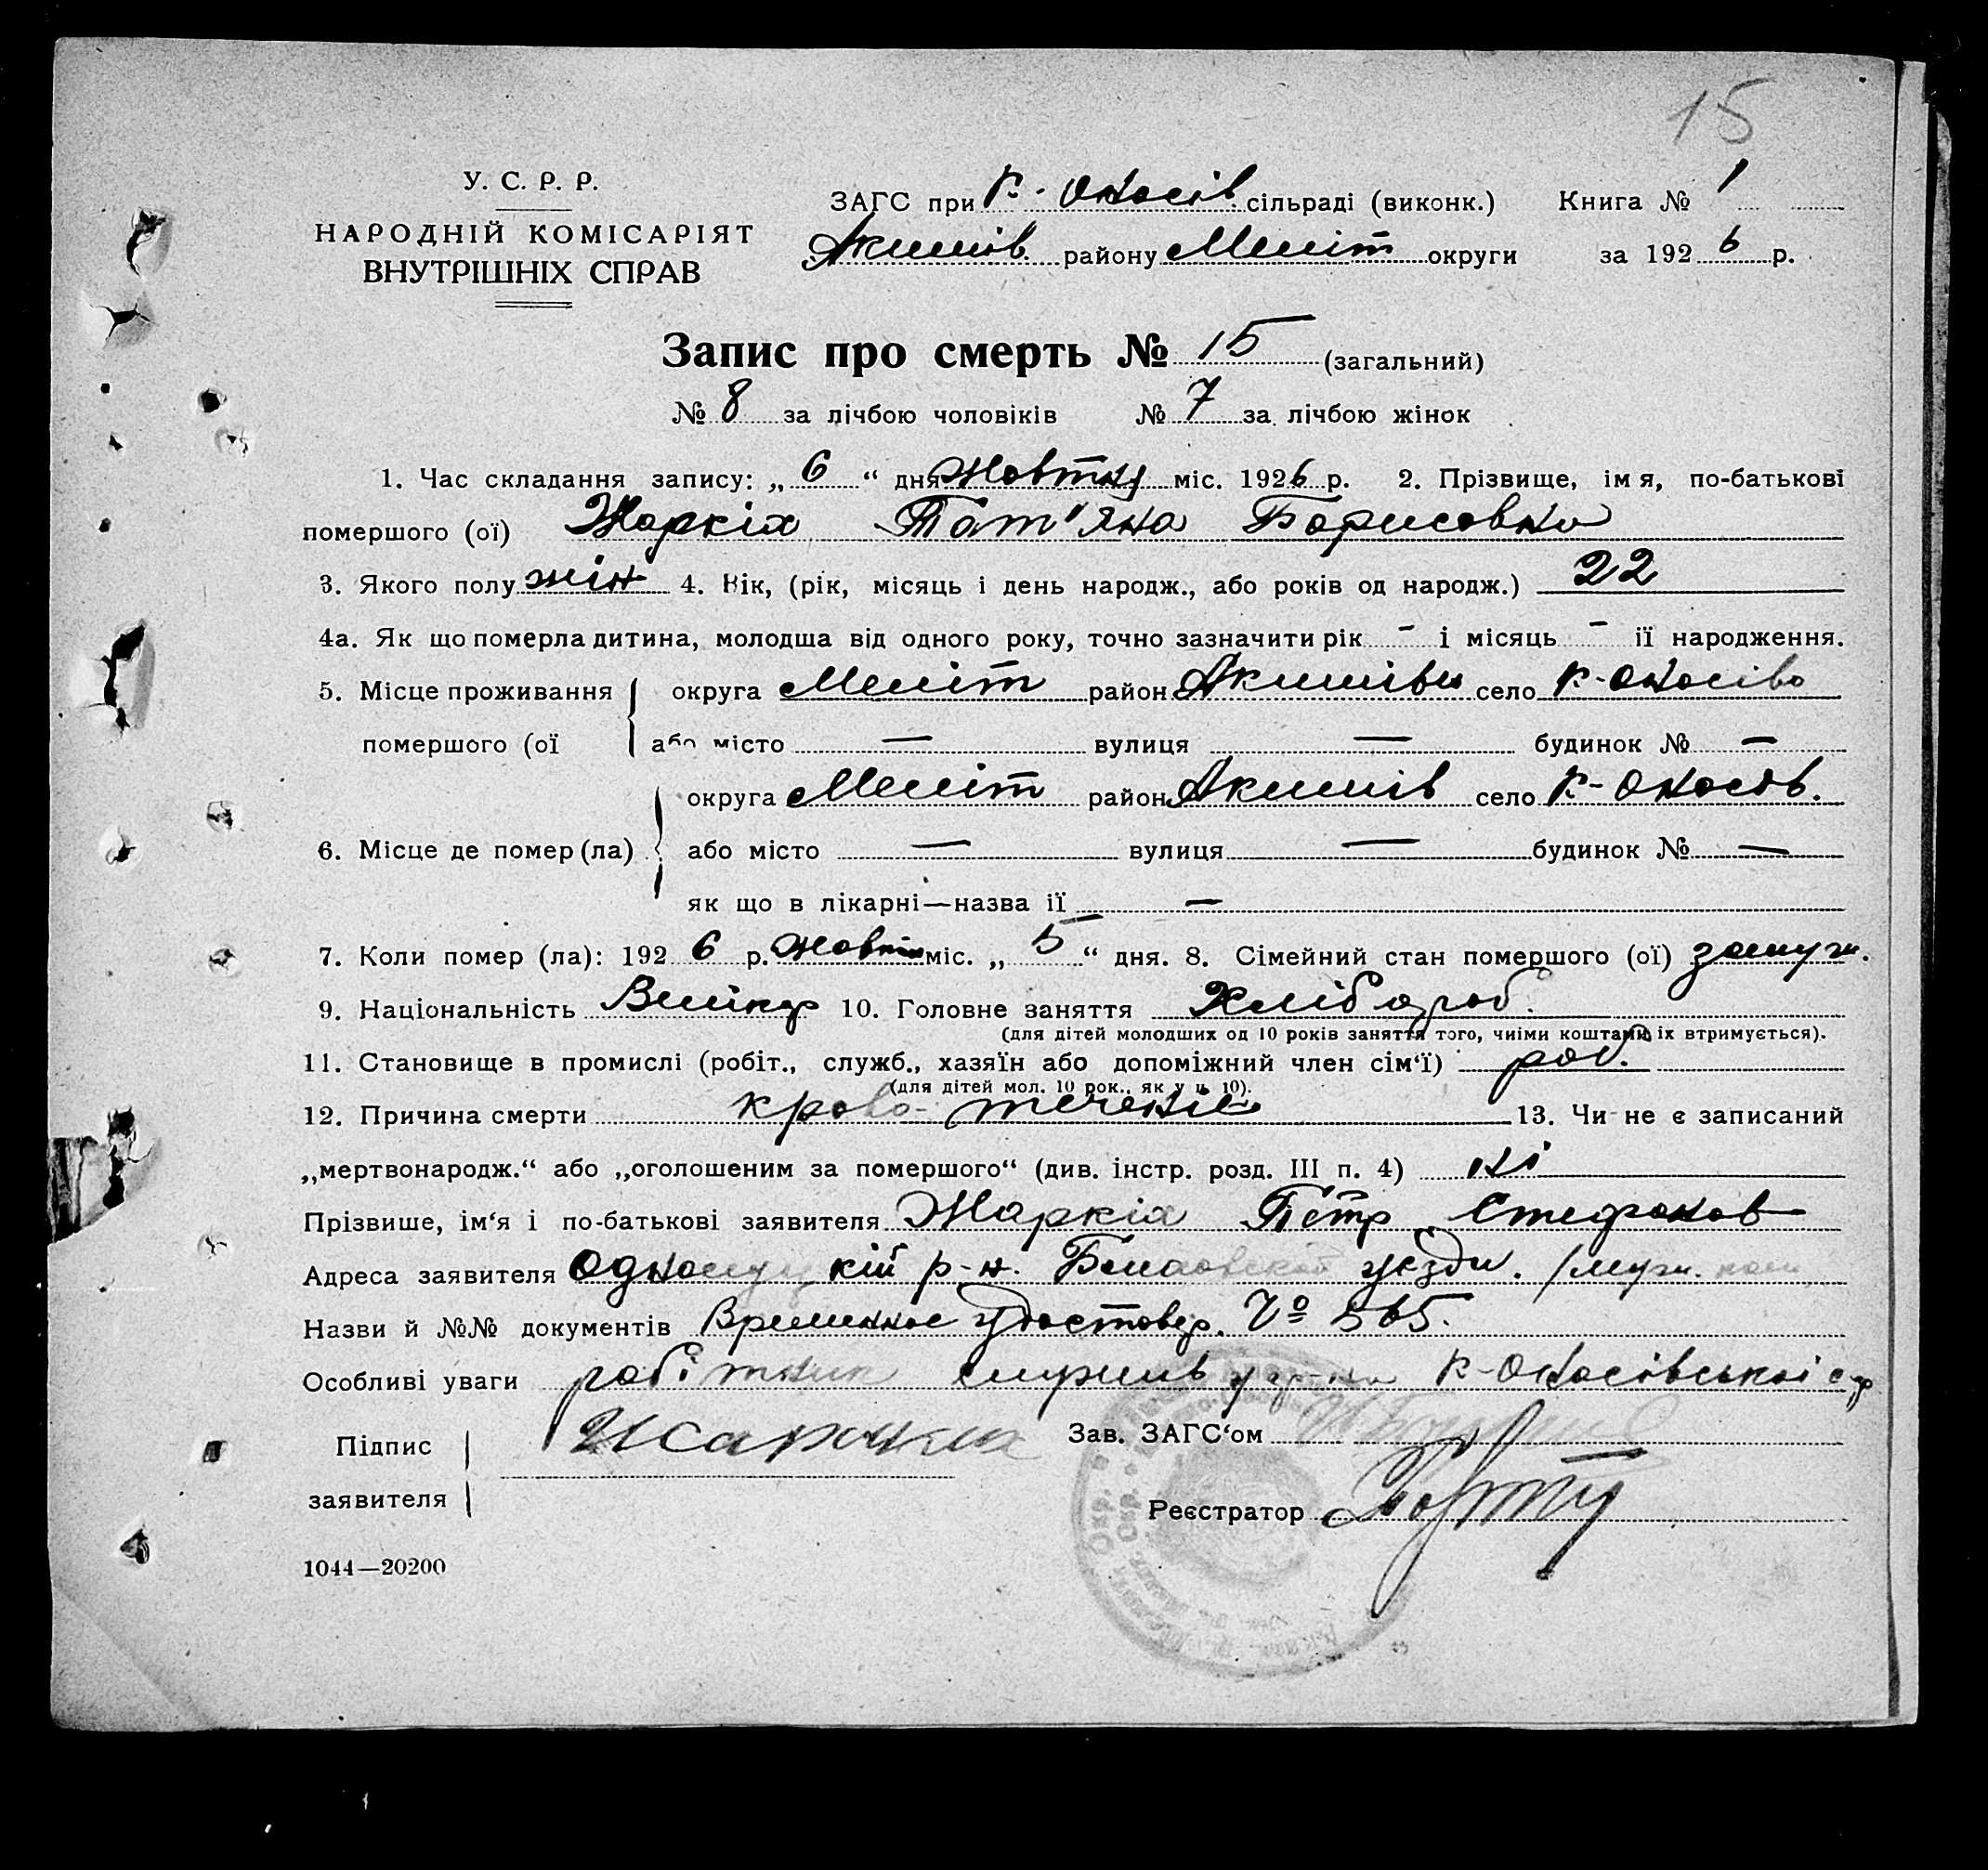 15
У. С. Р. Р.
НАРОДНІЙ КОМІСАРІЯТ
ВНУТРІШНІХ СПРАВ
ЗАГС при К.-Онасів. сільраді (виконк.) Книга № 1
Акимів. району Меліт округи за 1926 р.
Запис про смерть № 15 (загальний)
№ 8 за лічбою чоловіків № 7 за лічбою жінок
1. Час складання запису: „ 6 “ дня Жовтня міс. 1926 р. 2. Прізвище, імя, по-батькові
помершого (ої) Жаркіх Тат'яна Борисовна
3. Якого полу жін 4. Вік, (рік, місяць і день народж., або років од народж.) 22
4а. Як що померла дитина, молодша від одного року, точно зазначити рік - і місяць - ії народження.
5. Місце проживання округа Меліт район Акимівк село К-Онасіво
помершого (ої або місто — вулиця — будинок № —
округа Меліт район Акимів село К-Онасів.
6. Місце де помер(ла) або місто — вулиця — будинок № —
як що в лікарні—назва ії —
7. Коли помер (ла): 1926 р. Жовтня міс. „ 5 “ дня. 8. Сімейний стан помершого (ої) замуж.
9. Національність Велікор 10. Головне заняття Хлібороб.
(для дітей молодших од 10 років заняття того, чиїми коштами їх втримується).
11. Становище в промислі (робіт., служб., хазяїн або допоміжний член сім‘ї) роб.
(для дітей мол. 10 рок., як у п. 10).
12. Причина смерти крово-теченіе 13. Чи не є записаний
„мертвонародж.“ або „оголошеним за помершого“ (див. інстр. розд. III п. 4) ні
Прізвише, ім‘я і по-батькові заявителя Жаркіх Пётр Стефанов
Адреса заявителя р-н. уезди. /муж.
Назви й №№ документів Временное Удостовер. № 565.
Особливі уваги робітник К-Онасівськоі с-р
Підпис
заявителя
Зав. ЗАГС‘ом
Реєстратор
1044—20200